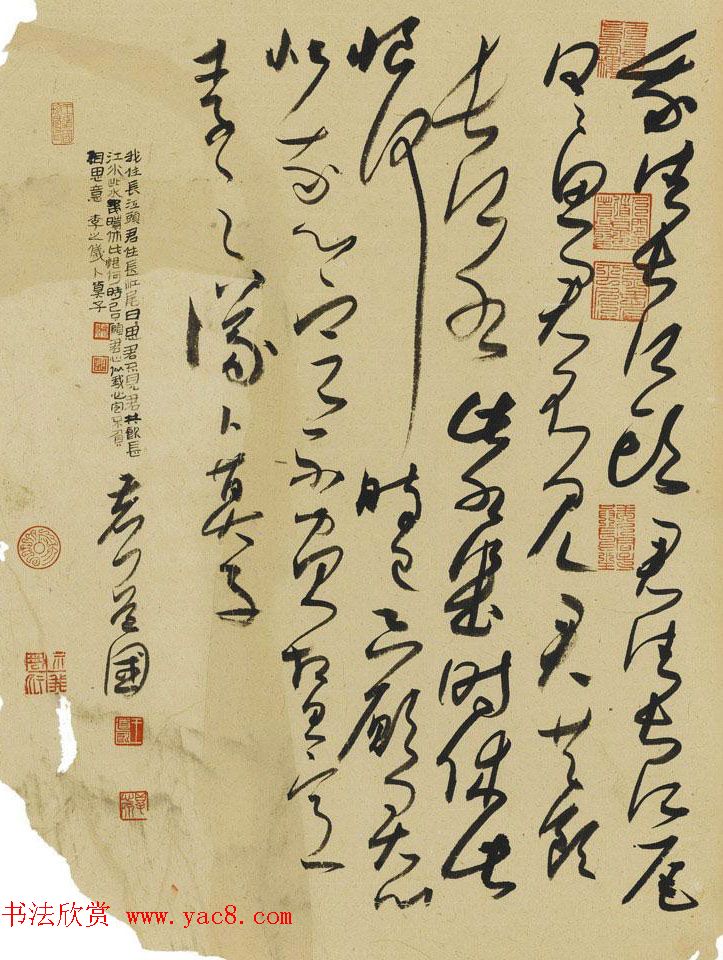 我住长江头君住长江尾
日〻思君不见君共饮
长江水此水幾时休此
恨何時已只愿君心
似我心定不负相思意
李之仪卜算子
我住長江頭君住長江尾日〻思君不見君共飲長
江水此水幾時休此恨何時已只願君心似我心定不負
相思意 李之儀卜算子
道國
书法欣赏 www.yac8.com